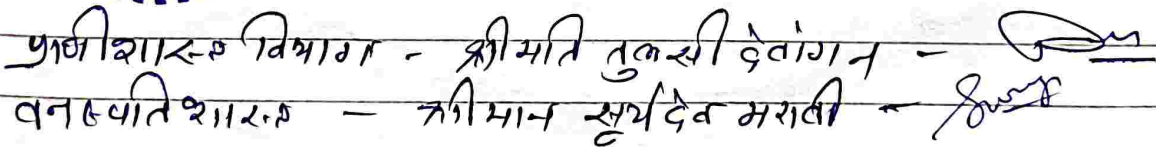 प्राणीशास्त्र विभाग - श्रीमति तुलसी देवांगन -
वनस्पति शास्त्र - श्रीमान सूर्यदेव मरावी -